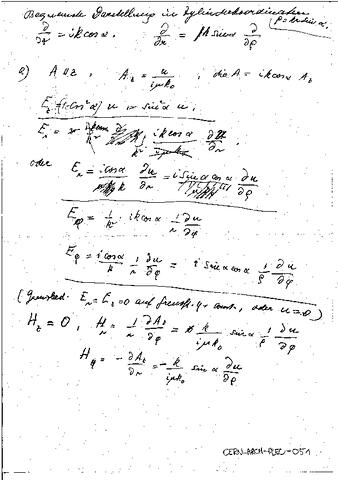 Bequemste Darstellung in Zylinderkoordinaten
∂/∂z = ik cos α. ∂/∂r = k sin α ∂/∂ρ ρ = kr sin α.
a) A ∥ z, A_z = u/(iμk₀), div A = ik cos α A_z
E_z = (1-cos²α) u = sin²α u.
E_r = ik cos α/k² ∂u/∂r.
oder E_r = i cos α/k ∂u/∂r = i sin α cos α ∂u/∂ρ
E_φ = 1/k² · ik cos α 1/r ∂u/∂φ
E_φ = i cos α/k 1/r ∂u/∂φ = i sin α cos α 1/ρ ∂u/∂φ
E_r = E_z = 0 auf φ = const, oder u = 0)
H_z = 0, H_r = 1/r ∂A_z/∂φ = k/(iμk₀) sin α 1/ρ ∂u/∂φ
H_φ = -∂A_z/∂r = -k/(iμk₀) sin α ∂u/∂ρ
CERN-ARCH-PLEC-051